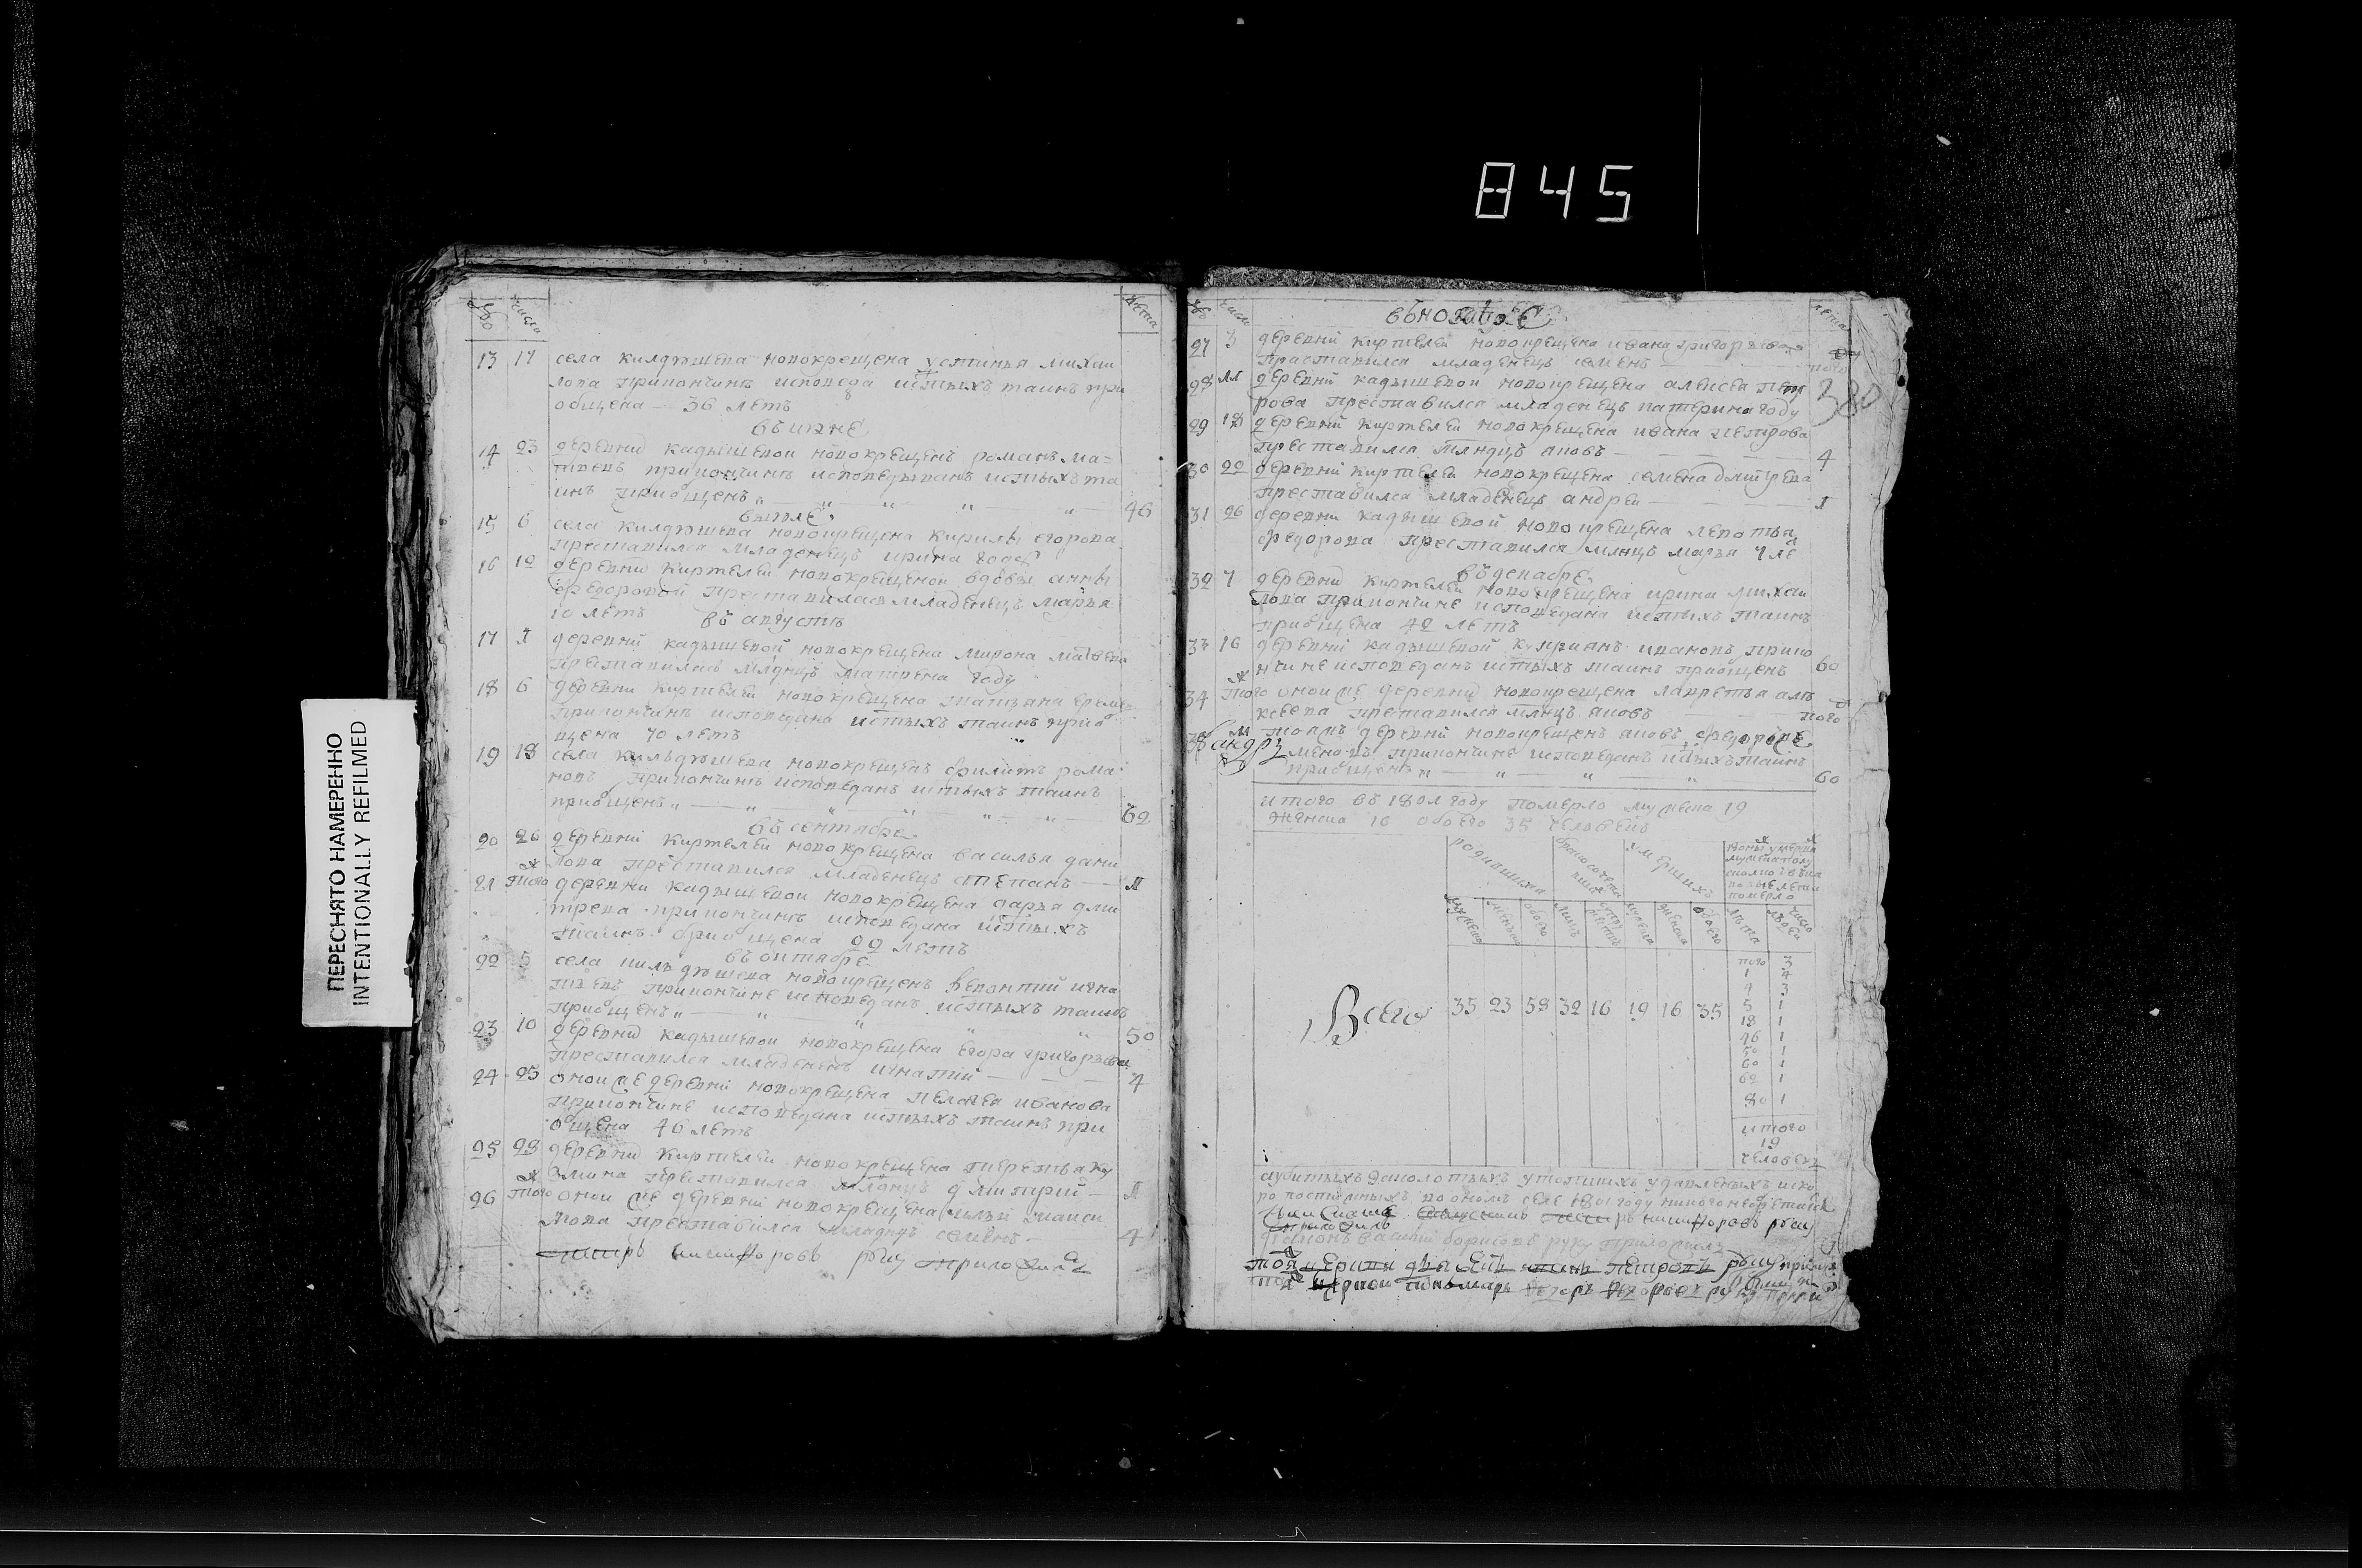 845
ПЕРЕСНЯТО НАМЕРЕННО
INTENTIONALLY REFILMED
№
число
лета
13 17 села килдюшева новокрещена устинья михаи
лова приконъчине исповеда истыхъ таинъ при
общена 36 летъ
въ июне
14 23 деревни кадышевои новокрещенъ романъ ма=
твеевъ приконъчине исповедыванъ истыхъ та
инъ приобщенъ 46
въ июле
15 6 села килдюшева новокрещена кирилы егорова
преставился младенецъ ирина году
16 12 деревни киртелеи новокрещенои вдовы анны
федоровой преставилась младенецъ марья
10 летъ
въ августе
17 1 деревни кадышевой новокрещена мирона матвеева
преставилась младнцъ матрена году
18 6 деревни киртелеи новокрещена татьяна еремее
приконъчине исповедана истыхъ таинъ приоб
щена 70 летъ
19 18 села кильдюшева новокрещенъ филипъ рома
новъ приконъчине исповеданъ истыхъ таинъ
приобщенъ 62
въ сентябре
20 26 деревни киртелеи новокрещена василья дани
лова преставился младенецъ степанъ 1
21 того деревни кадышевои новокрещена дарья дми
трева приконъчине исповедана истыхъ
таинъ приобщена 22 летъ
въ октябре
22 5 села килъдюшева новокрещенъ игна
тьевъ приконъчине исповеданъ истыхъ таинъ
приобщенъ 50
23 10 деревни кадышевои новокрещена егора григорьева
преставился младенецъ игнатий 4
24 25 оноиже деревни новокрещена пелагея иванова
приконъчине исповедана истыхъ таинъ при
общена 46 летъ
25 28 деревни киртелеи новокрещена терентья ку
змина преставился младнцъ дмитрий 1
26 того оноиже деревни новокрещена
мова преставился младнцъ семенъ 4
никифоровъ руку приложилъ
№
число
лета
въ ноябре
27 3 деревни киртелеи новокрещена ивана григорьева
преставился младенецъ семенъ полго
380
28 11 деревни кадышевои новокрещена алексея пет
рова преставился младенецъ катерина году
29 18 деревни киртелеи новокрещена ивана петрова
преставился млднцъ яковъ 4
30 22 деревни киртелеи новокрещена семена дмитрева
преставился младенецъ андреи 1
31 26 деревни кадышевой новокрещена леонтья
федорова преставился млнцъ марья 4 ле
въ декабре
32 7 деревни киртелеи новокрещена ирина михаи
лова приконъчине исповедана истыхъ таинъ
приобщена 42 летъ
33 16 деревни кадышевой куприянъ ивановъ прико
нчине исповеданъ истыхъ таинъ приобщенъ 60
34 того оноиже деревни новокрещена лаврентья але
ксеева преставился млнцъ яковъ полго
35 тоижъ деревни новокрещенъ яковъ федоровъ
приконъчине исповеданъ истыхъ таинъ
приобщенъ 60
итого въ 1801 году померло мужеска 19
женска 16 обоего 35 человекъ
родившихся
умершихъ
померло
мужеска
женска
обоего
мужеска
женска
обоего
лета
число
Всего 35 23 58 32 16 19 16 35
полго 3
1 4
4 3
5 1
18 1
46 1
50 1
60 1
62 1
80 1
итого
19
человекъ
аубитыхъ замолотыхъ утопшихъ удавленыхъ иско
ропостижныхъ воономъ селе 1801 году никого необретается
никифоровъ руку
приложилъ
диаконъ василий борисовъ руку приложилъ
тоя церкви петровъ руку прило
тоя церкви пономарь егоръ руку